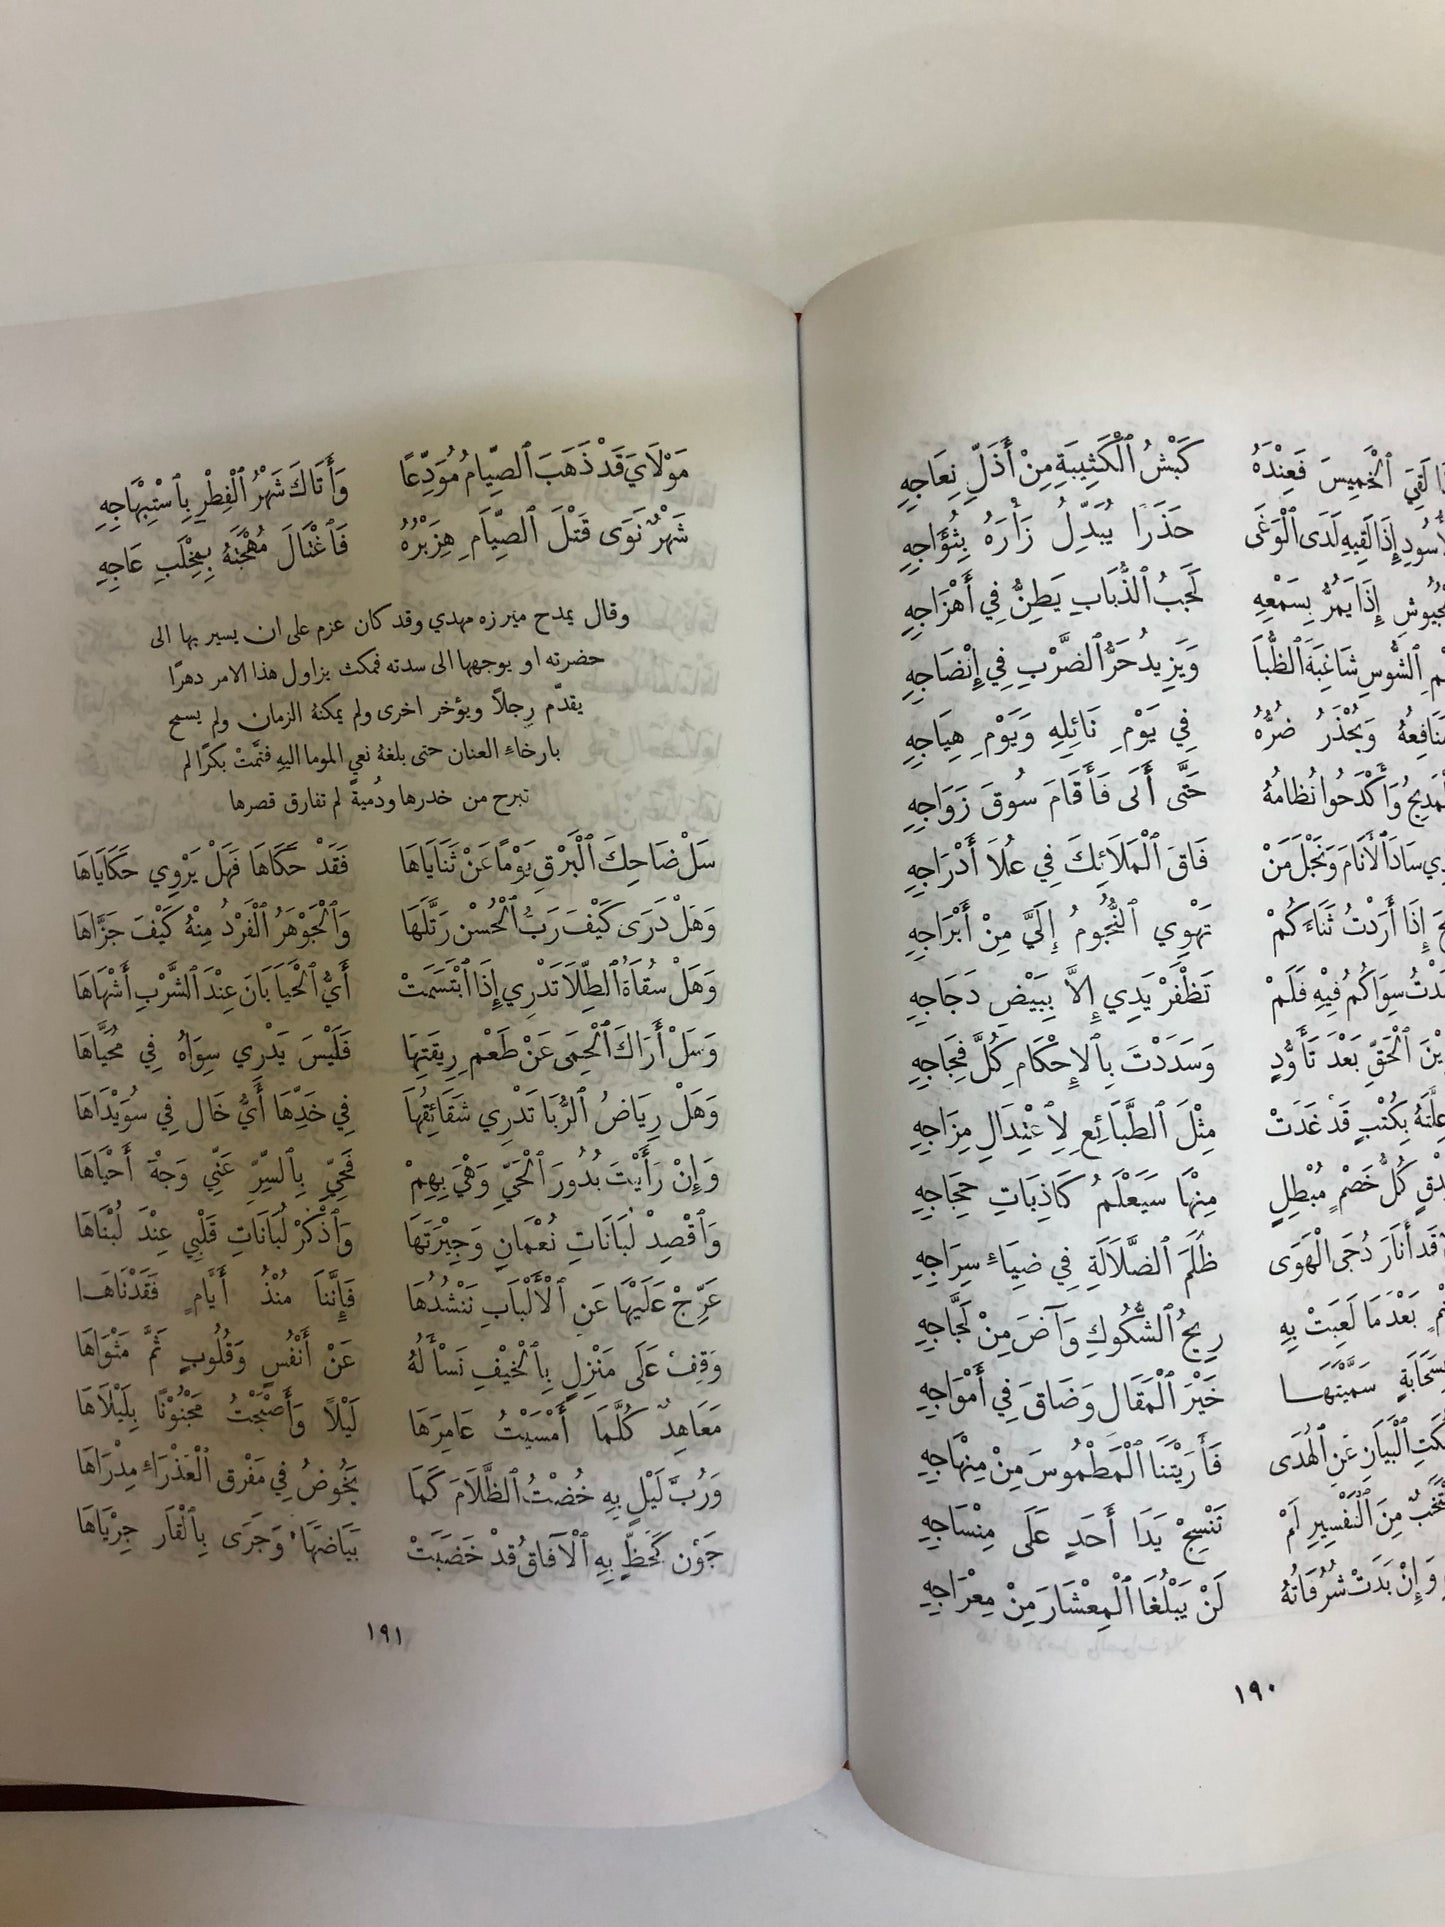 لَقِيَ ٱلْخَمِيسَ فَعِنْدَهُ كَبْشُ ٱلْكَثِيبَةِ مِنْ أَذَلِّ نِعَاجِهِ
إِذَا لَقِيهِ لَدَى ٱلْوَغَى حَذَرًا يُبَدِّلُ زَأْرَهُ بِثُؤَاجِهِ
إِذَا يَمُرُّ بِسَمْعِهِ لَجَبُ ٱلذُّبَابِ يَطِنُّ فِي أَهْزَاجِهِ
ٱلشُّوسِ شَاغِبَةَ ٱلظُّبَا وَيَزِيدُ حَرُّ ٱلضَّرْبِ فِي إِنْضَاجِهِ
وَيُحْذَرُ ضُرُّهُ فِي يَوْمِ نَائِلِهِ وَيَوْمِ هِيَاجِهِ
وَأَكْدَحُوا نُظَامُهُ حَتَّى أَتَى فَأَقَامَ سُوقَ زَوَاجِهِ
سَادَ ٱلْأَنَامَ وَنَجْلَ مَنْ فَاقَ ٱلْمَلَائِكَ فِي عُلَا أَدْرَاجِهِ
إِذَا أَرَدْتُ ثَنَاءَكُمْ تَهْوِي ٱلنُّجُومُ إِلَيَّ مِنْ أَبْرَاجِهِ
سِوَاكُمُ فِيهِ فَلَمْ تَظْفَرْ يَدِي إِلاَّ بِبَيْضِ دَجَاجِهِ
ٱلْحَقِّ بَعْدَ تَأَوُّدٍ وَسَدَدْتَ بِٱلإِحْكَامِ كُلَّ فِجَاجِهِ
بِكُتْبٍ قَدْ غَدَتْ مِثْلَ ٱلطَّبَائِعِ لِٱعْتِدَالِ مِزَاجِهِ
كُلُّ خَصْمٍ مُبْطِلٍ مِنْهَا سَيَعْلَمُ كَاذِبَاتِ حِجَاجِهِ
قَد أَنَارَ دُجَى ٱلْهَوَى ظُلَمَ ٱلضَّلَالَةِ فِي ضِيَاءِ سِرَاجِهِ
بَعْدَمَا لَعِبَتْ بِهِ رِيحُ ٱلشُّكُوكِ وَآضَ مِنْ لَجَّاجِهِ
سَمَّيْتَهَا خَيْرَ ٱلْمَقَالِ وَضَاقَ فِي أَمْوَاجِهِ
ٱلْبَيَانِ عَنِ ٱلْهُدَى فَأَرَيْتَنَا ٱلْمَطْمُوسَ مِنْ مِنْهَاجِهِ
مِنَ ٱلتَّفْسِيرِ لَمْ تَنْسِجْ يَدَا أَحَدٍ عَلَى مِنْسَاجِهِ
وَإِنْ بَدَتْ شُرُفَاتُهُ لَنْ يَبْلُغَا ٱلْمِعْشَارَ مِنْ مِعْرَاجِهِ
١٩٠
مَوْلَايَ قَدْ ذَهَبَ ٱلصِّيَامُ مُوَدِّعًا وَأَتَاكَ شَهْرُ ٱلْفِطْرِ بِٱسْتِبْهَاجِهِ
شَهْرٌ نَوَى قَتْلَ ٱلصِّيَامِ هِزَبْرُهُ فَٱغْتَالَ مُهْجَتَهُ بِمِخْلَبِ عَاجِهِ
وقال يمدح ميرزه مهدي وقد كان عزم على ان يسير بها الى
حضرته او يوجهها الى سدته فمكث يزاول هذا الامر دهرًا
يقدّم رِجلاً ويؤخر اخرى ولم يمكنهُ الزمان ولم يسمح
بارخاء العنان حتى بلغهُ نعي الموما اليهِ فتمَّتْ بكرًا لم
تبرح من خدرها ودُميةً لم تفارق قصرها
سَلْ ضَاحِكَ ٱلْبَرْقِ يَوْمًا عَنْ ثَنَايَاهَا فَقَدْ حَكَاهَا فَهَلْ يَرْوِي حَكَايَاهَا
وَهَلْ دَرَى كَيْفَ رَبُّ ٱلْحُسْنِ رَتَّلَهَا وَٱلْجَوْهَرُ ٱلْفَرْدُ مِنْهُ كَيْفَ جَزَّاهَا
وَهَلْ سُقَاةُ ٱلطِّلَا تَدْرِي إِذَا ٱبْتَسَمَتْ أَيُّ ٱلْحَيَا بَانَ عِنْدَ ٱلشَّرْبِ أَشْهَاهَا
وَسَلْ أَرَاكَ ٱلْحِمَى عَنْ طَعْمِ رِيقَتِهَا فَلَيْسَ يَدْرِي سِوَاهُ فِي مُحَيَّاهَا
وَهَلْ رِيَاضُ ٱلرُّبَا تَدْرِي شَقَائِقُهَا فِي خَدِّهَا أَيُّ خَالٍ فِي سُوَيْدَاهَا
وَإِنْ رَأَيْتَ بُدُورَ ٱلْحَيِّ وَهْيَ بِهِمْ فَحَيِّ بِٱلسِّرِّ عَنِّي وَجْهَ أَحْيَاهَا
وَٱقْصِدْ لُبَانَاتِ نُعْمَانٍ وَجِيْرَتَهَا وَٱذْكُرْ لُبَانَاتِ قَلْبِي عِنْدَ لُبْنَاهَا
عَرِّجْ عَلَيْهَا عَنِ ٱلْأَلْبَابِ نَنْشُدُهَا فَإِنَّنَا مُنْذُ أَيَّامٍ فَقَدْنَاهَا
وَقِفْ عَلَى مَنْزِلٍ بِٱلْخَيْفِ نَسْأَلُهُ عَنْ أَنْفُسٍ وَقُلُوبٍ ثَمَّ مَثْوَاهَا
مَعَاهِدٌ كُلَّمَا أَمْسَيْتُ عَامِرَهَا لَيْلاً وَأَصْبَحْتُ مَجْنُوْنًا بِلَيْلَاهَا
وَرُبَّ لَيْلٍ بِهِ خُضْتُ ٱلظَّلَامَ كَمَا يَخُوضُ فِي مَفْرِقِ ٱلْعَذْرَاءِ مِدْرَاهَا
جَوْنٍ كَحَظٍّ بِهِ ٱلْآفَاقُ قَدْ خَضَبَتْ بَيَاضَهَا وَجَرَى بِٱلْقَارِ جِرْيَاهَا
١٩١